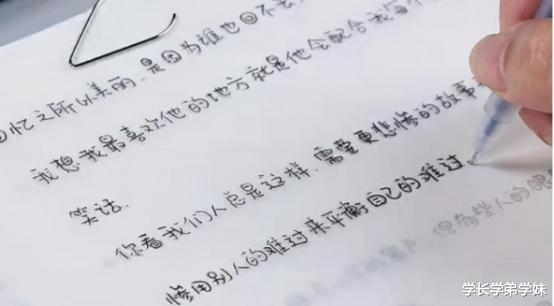 回忆之所以美丽.是因为谁也回不去.
我想我最喜欢他的地方就是他会配合我每个
笑话.
你看我们人总是这样.需要更悲惨的故事
惨用别人的难过来平衡自己的难过.
但有些人的眼
学长学弟学妹